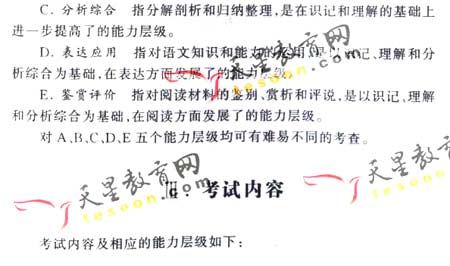 C．分析综合　指分解剖析和归纳整理，是在识记和理解的基础上
进一步提高了的能力层级。
D．表达应用　指对语文知识和能力的运用，是以识记、理解和分
析综合为基础，在表达方面发展了的能力层级。
E．鉴赏评价　指对阅读材料的鉴别、赏析和评说，是以识记、理解
和分析综合为基础，在阅读方面发展了的能力层级。
对A、B、C、D、E五个能力层级均可有难易不同的考查。
天星教育网
tesoon.com
天星教育网
tesoon.com
天星教育网
tesoon
考试内容
考试内容及相应的能力层级如下：